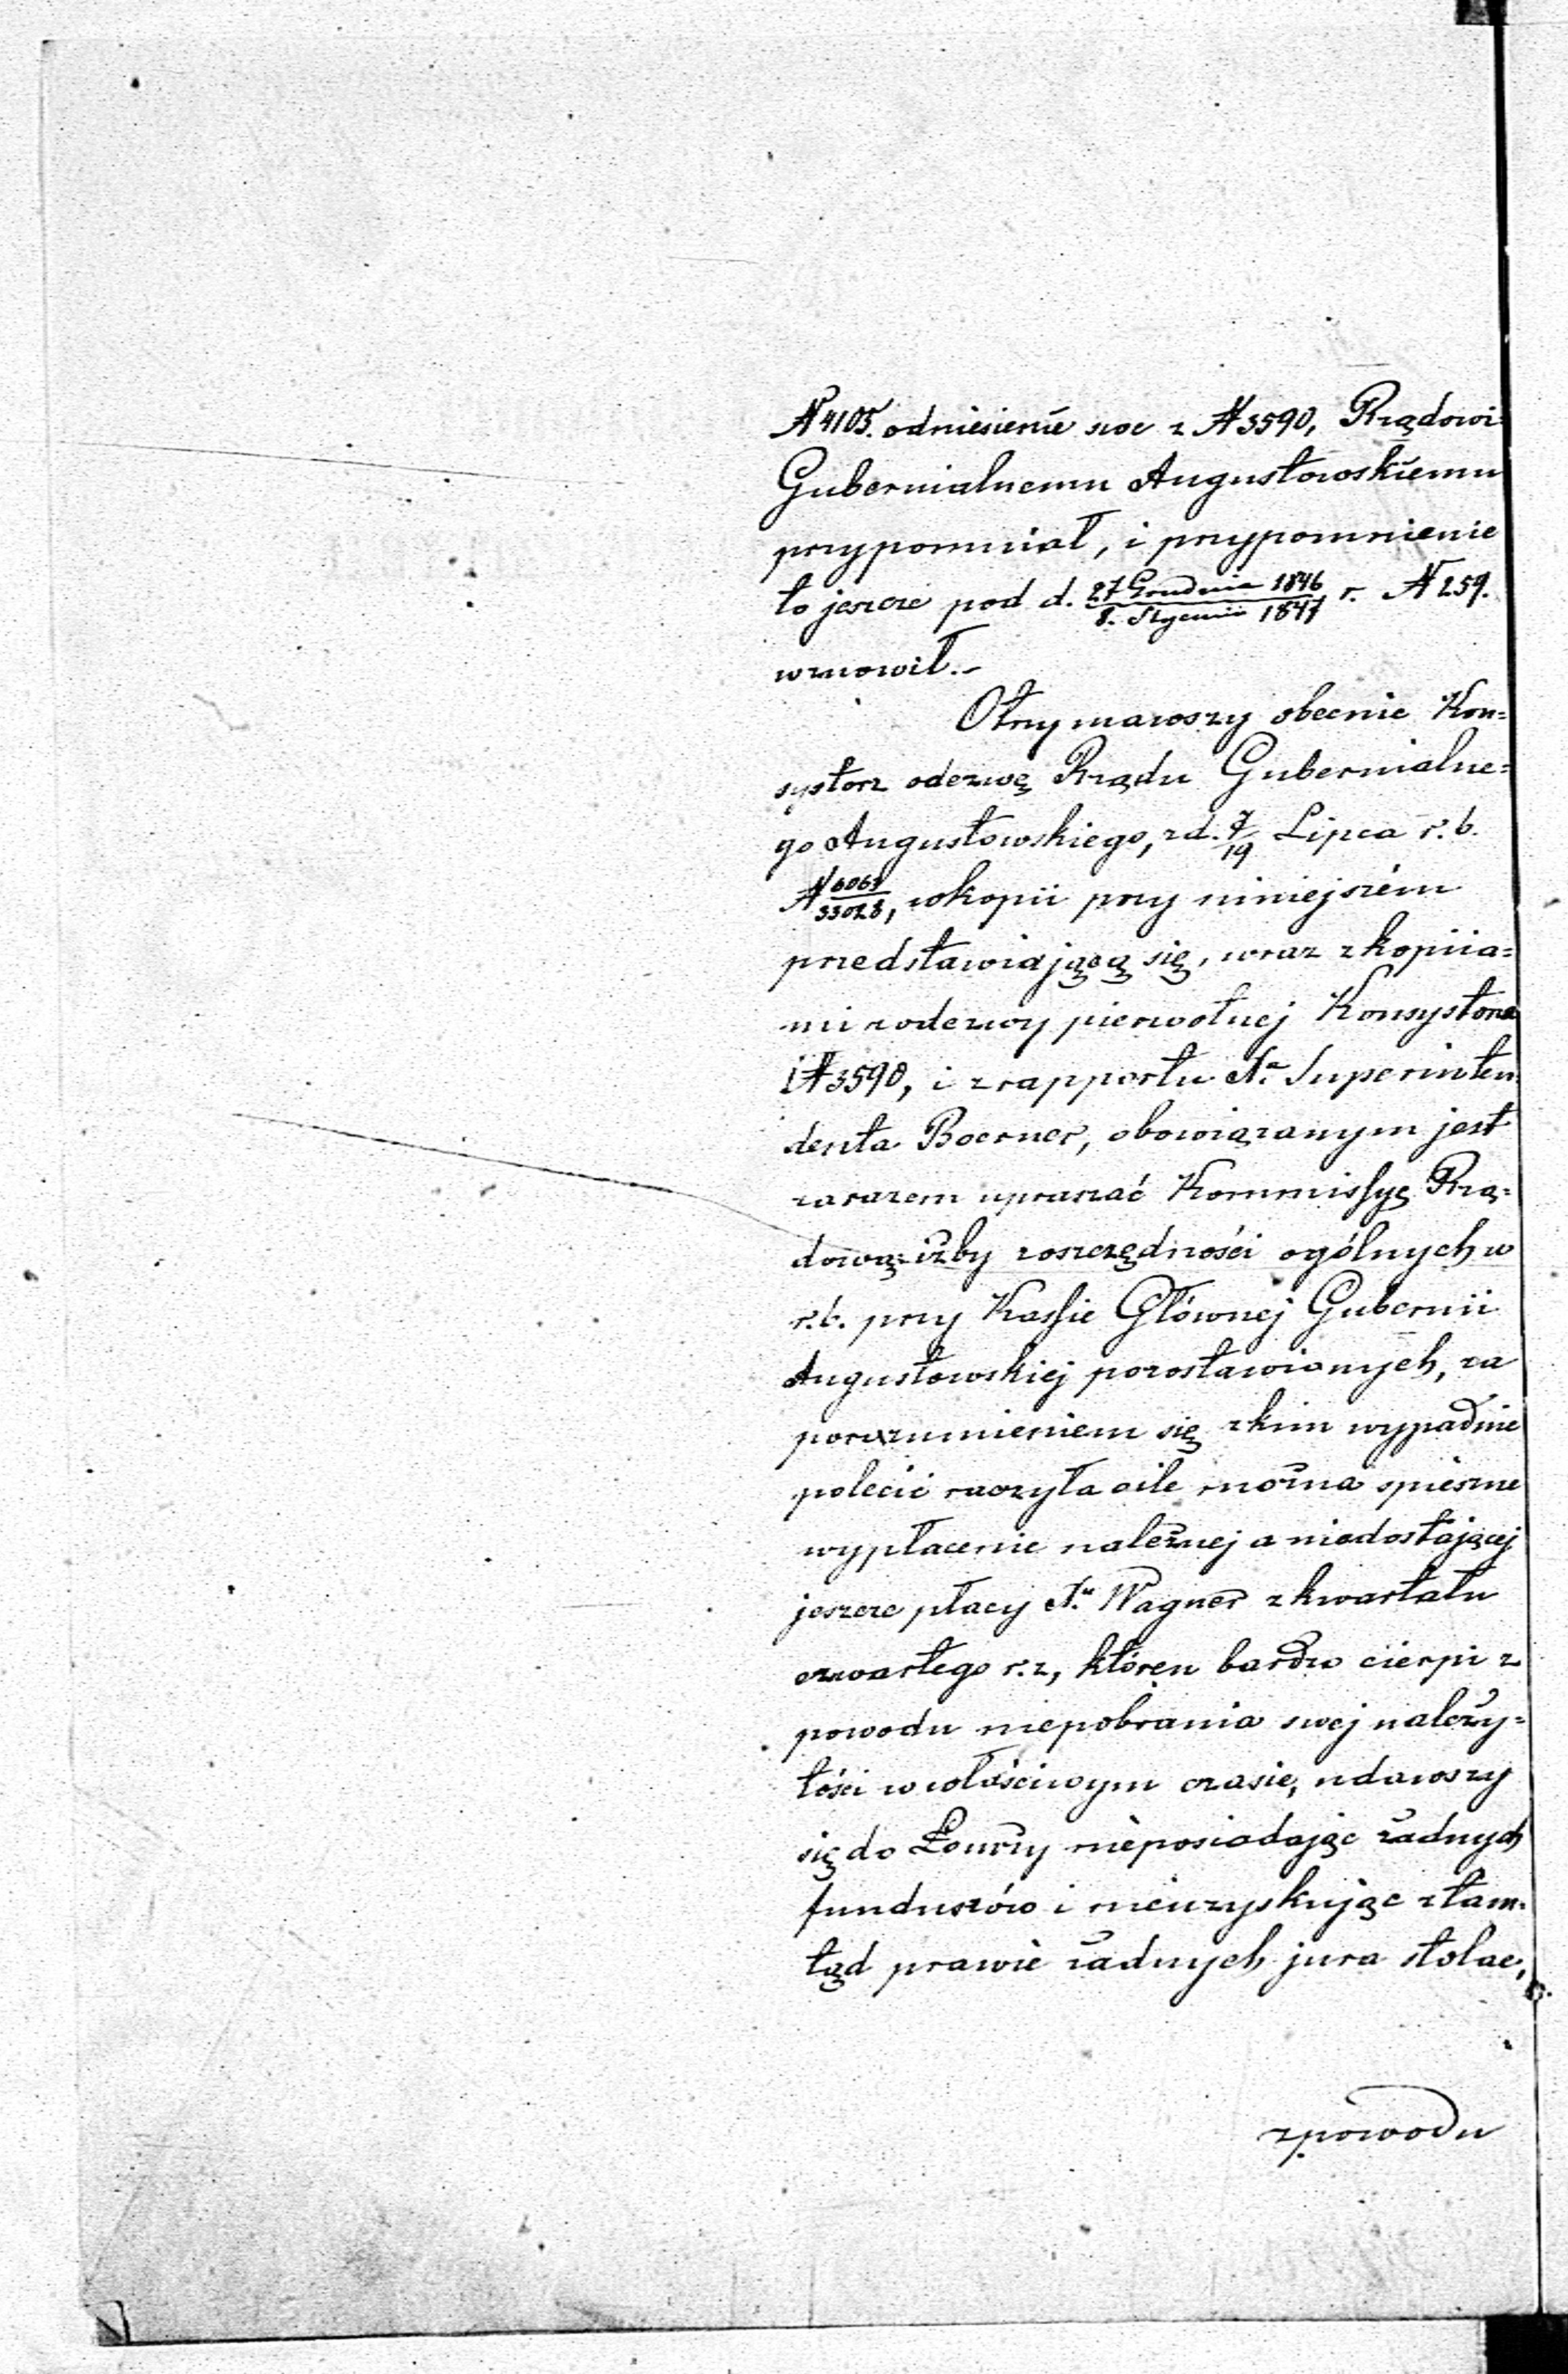 N 4105. odniesienie swe z N 3590, Rządowi
Gubernialnemu Augustowskiemu
przypomniał, i przypomnienie
to jeszcze pod d. 27 Grudnia 1846 / 8. Stycznia 1847 r. N 259.
wznowił.-
Otrzymawszy obecnie Kon=
systorz odezwę Rządu Gubernialne=
go Augustowskiego, z d. 7/19 Lipca r. b.
N /33028, w kopii przy niniejszém
przedstawiającą się, wraz z kopiia=
mi z odezwy pierwotnej Konsystorza
N 3590, i z rapportu Superinten
denta Boerner, obowiązanym jest
zarazem upraszać Kommissyę Rzą=
dową: iżby z oszczędności ogólnych w
r. b. przy Kassie Głównej Gubernii
Augustowskiej pozostawionych, za
porozumieniem się z kim wypadnie
polecić raczyła o ile można spieszne
wypłacenie należnej a niedostającej
jeszcze płacy Wagner z kwartału
czwartego r. z, któren bardzo cierpi z
powodu niepobrania swej należy=
tości w właściwym czasie, udawszy
się do Łomży nieposiadając żadnych
funduszów i nieuzyskując z tam=
tąd prawie żadnych jura stolae,
z powodu